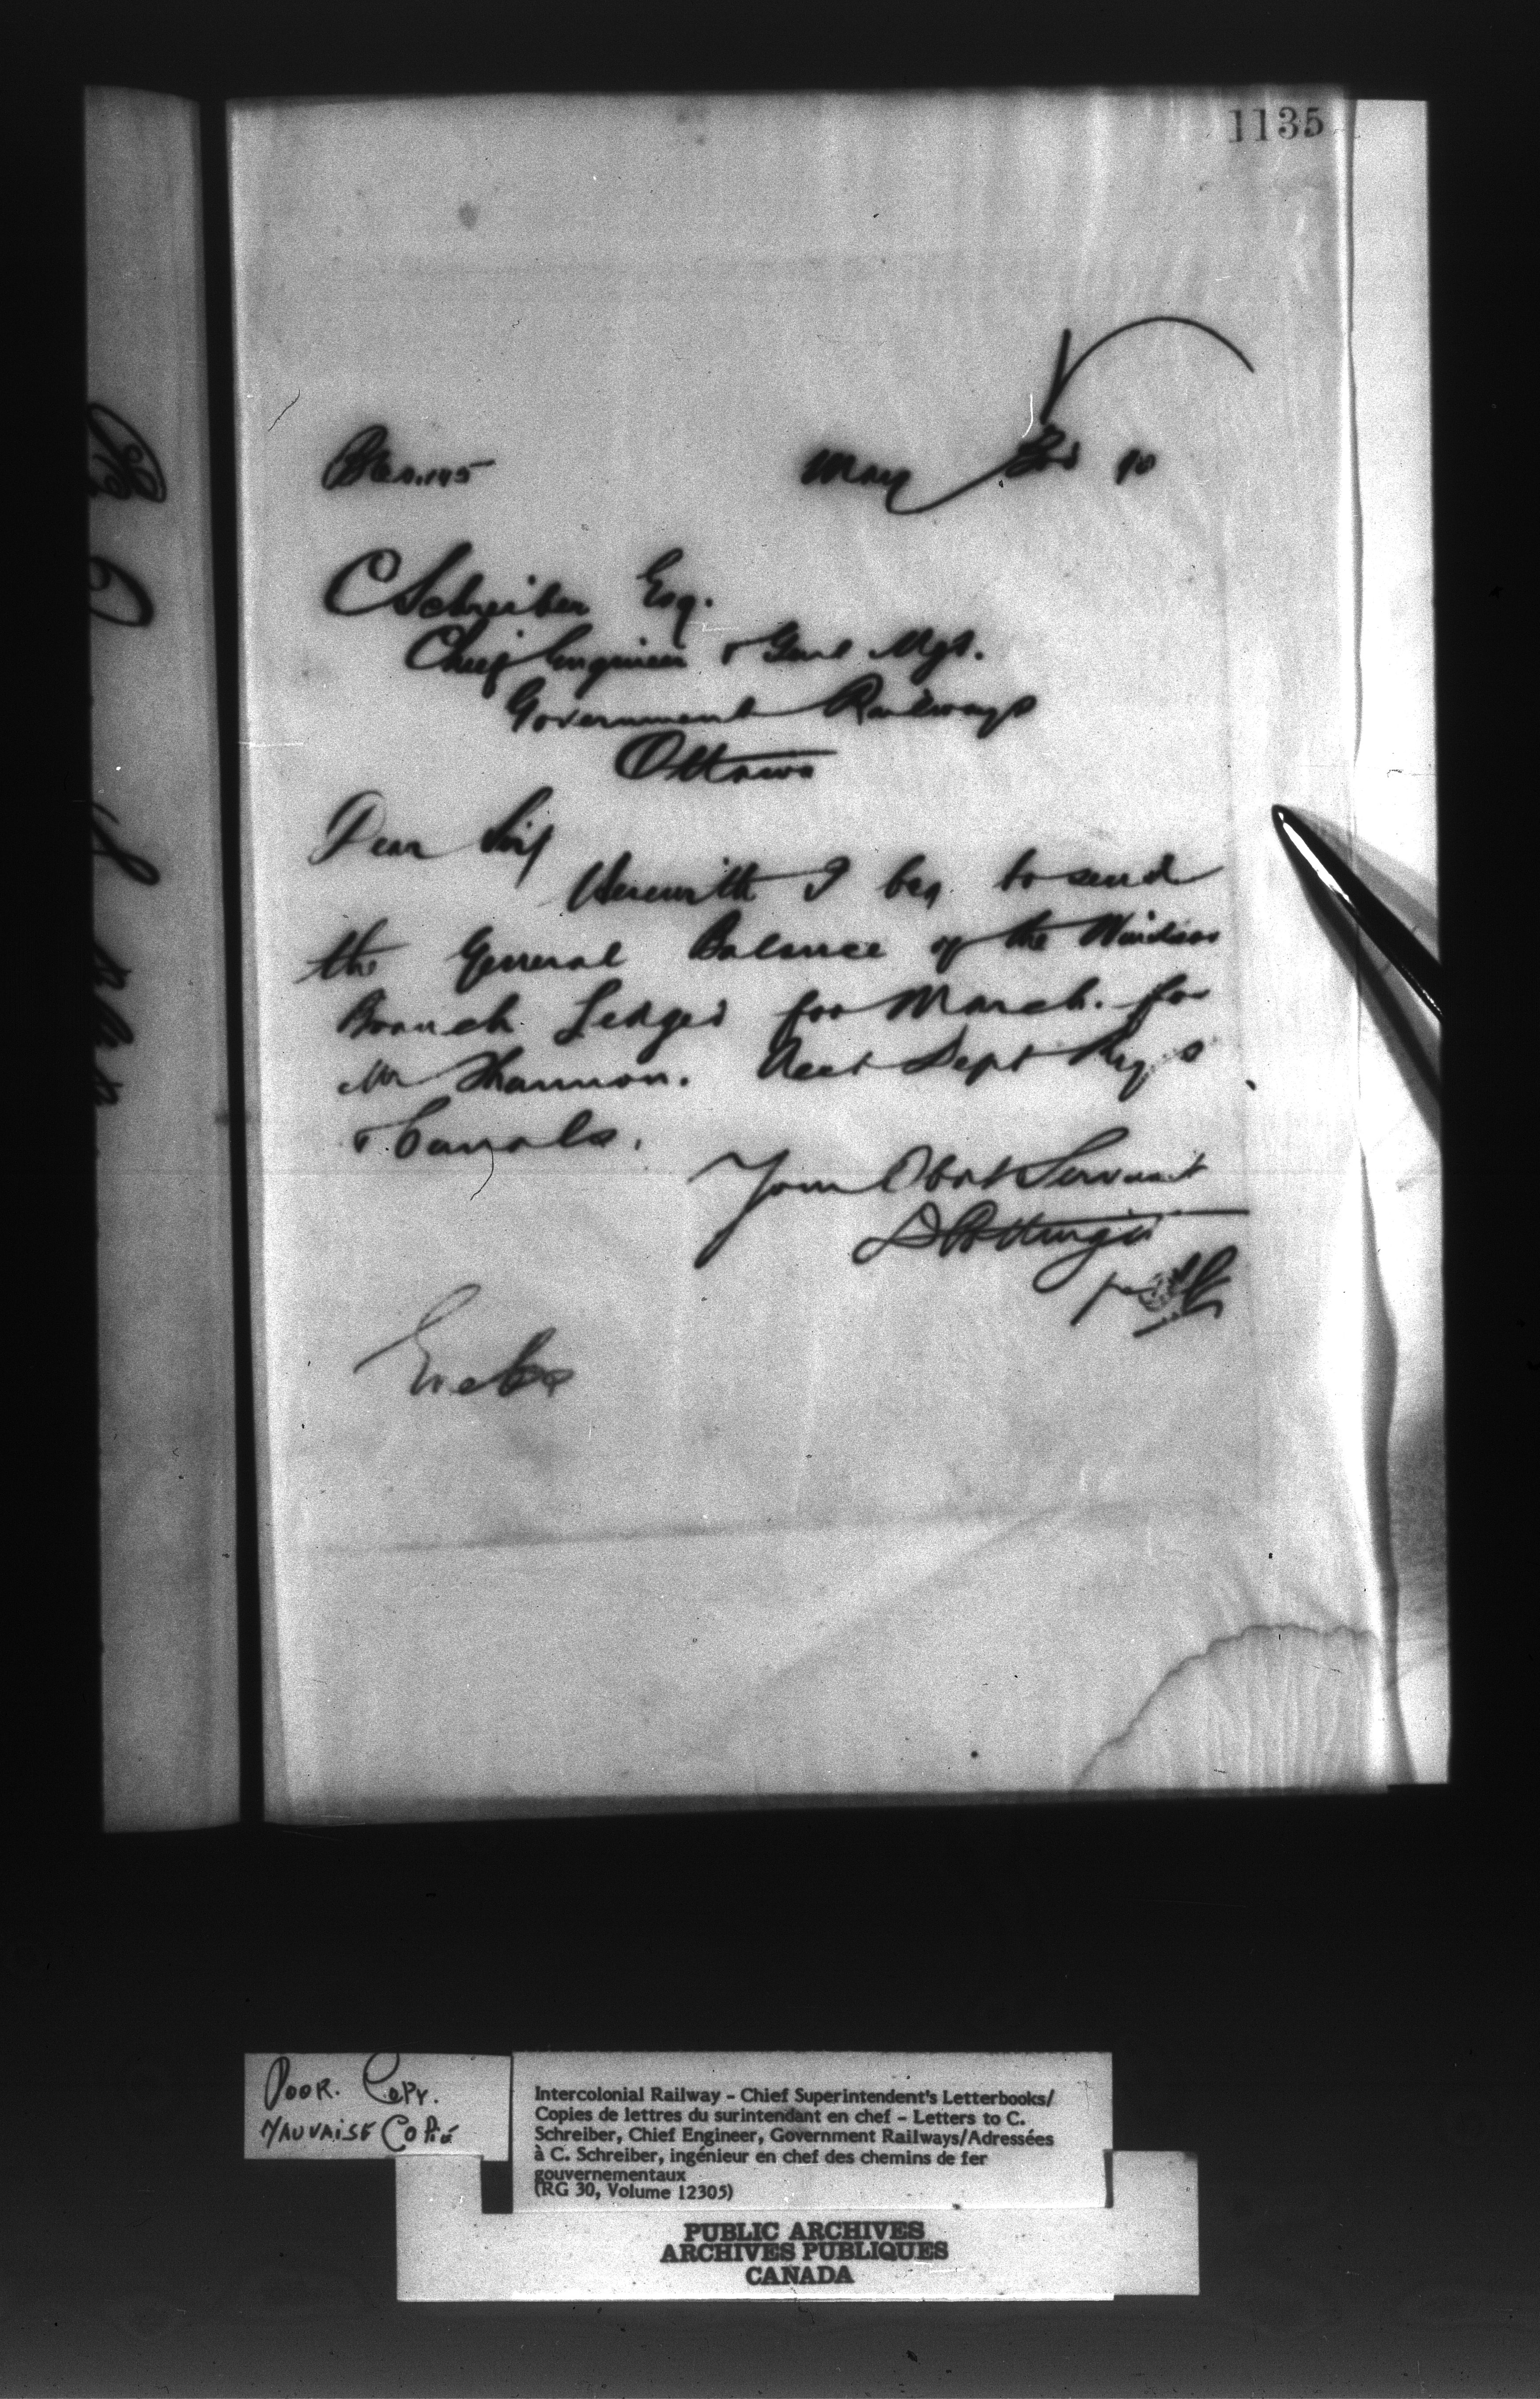 1135
May 90
C Schreiber Esq.
Chief Engineer & Genl Mgr.
Government Railways
Ottawa
Dear Sir
Herewith I beg to send
the General Balance of the Windsor
Branch Ledger for March. for
Mr Shannon. Acct Dept Rys
& Canals.
Your Obdt Servant
D Pottinger
per
Encls
POOR. COPY.
MAUVAISE COPIE
Intercolonial Railway - Chief Superintendent's Letterbooks/
Copies de lettres du surintendant en chef - Letters to C.
Schreiber, Chief Engineer, Government Railways/Adressées
à C. Schreiber, ingénieur en chef des chemins de fer
gouvernementaux
(RG 30, Volume 12305)
PUBLIC ARCHIVES
ARCHIVES PUBLIQUES
CANADA